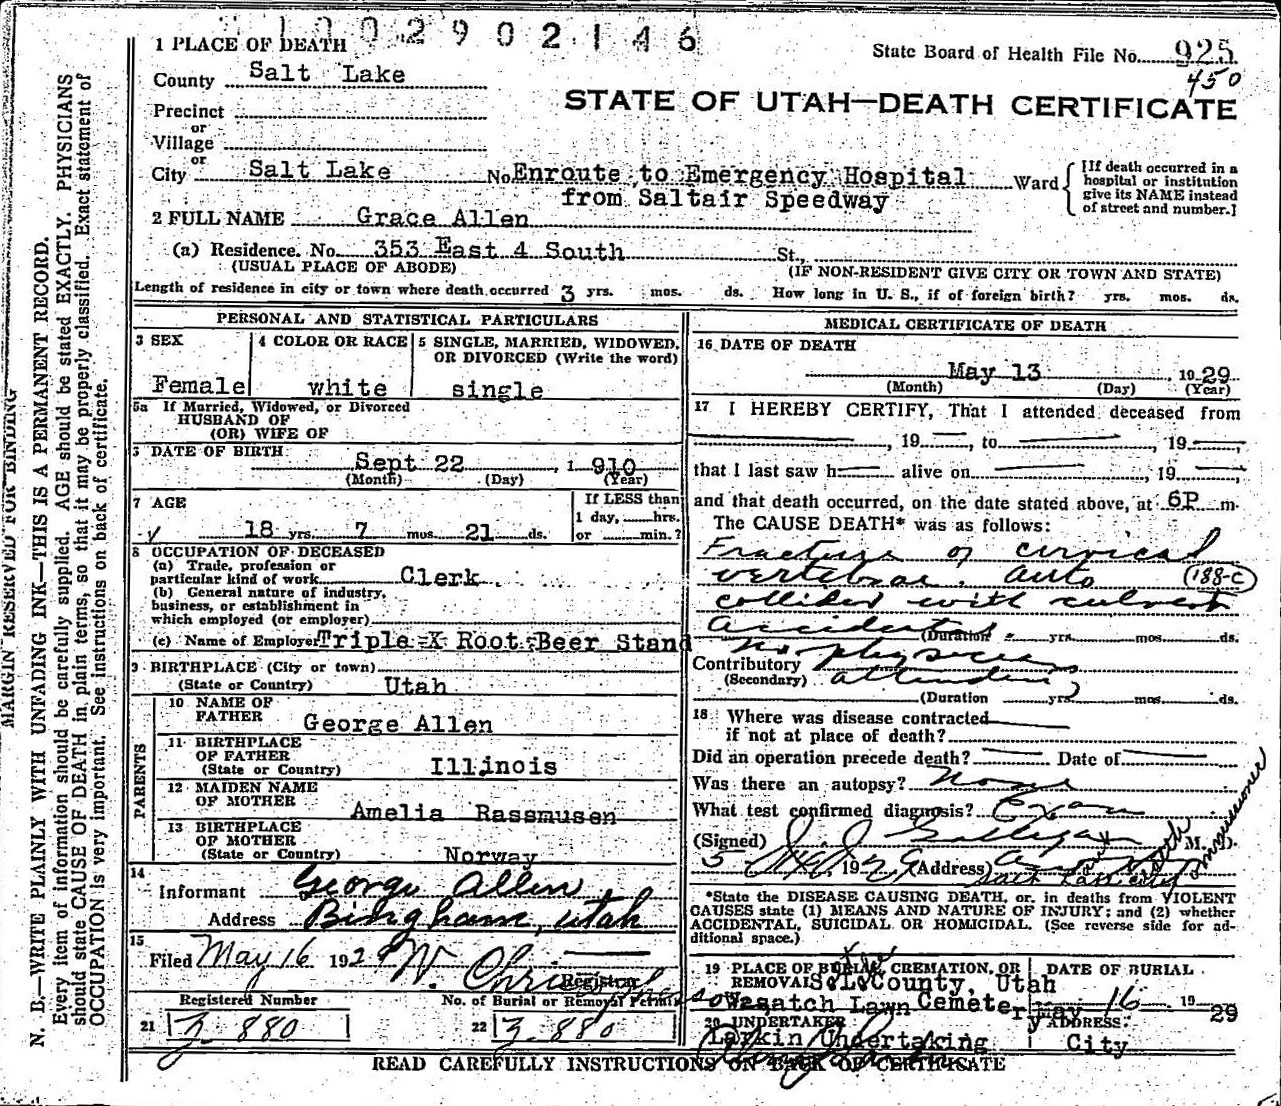 1 0 0 2 9 0 2 1 4 6
State Board of Health File No. 925
450
STATE OF UTAH—DEATH CERTIFICATE
1 PLACE OF DEATH
County Salt Lake
Precinct
or
Village
or
City Salt Lake No. Enroute to Emergency Hospital Ward
from Saltair Speedway
[If death occurred in a
hospital or institution
give its NAME instead
of street and number.]
2 FULL NAME Grace Allen
(a) Residence. No. 353 East 4 South St.,
(USUAL PLACE OF ABODE) (IF NON-RESIDENT GIVE CITY OR TOWN AND STATE)
Length of residence in city or town where death occurred 3 yrs. mos. ds. How long in U. S., if of foreign birth? yrs. mos. ds.
PERSONAL AND STATISTICAL PARTICULARS
3 SEX
Female
4 COLOR OR RACE
white
5 SINGLE, MARRIED, WIDOWED,
OR DIVORCED (Write the word)
single
5a If Married, Widowed, or Divorced
HUSBAND OF
(OR) WIFE OF
6 DATE OF BIRTH
Sept 22, 1910
(Month) (Day) (Year)
7 AGE
18 yrs. 7 mos. 21 ds.
If LESS than
1 day, hrs.
or min.?
8 OCCUPATION OF DECEASED
(a) Trade, profession or
particular kind of work Clerk
(b) General nature of industry,
business, or establishment in
which employed (or employer)
(c) Name of Employer Triple X Root Beer Stand
9 BIRTHPLACE (City or town)
(State or Country) Utah
PARENTS
10 NAME OF
FATHER George Allen
11 BIRTHPLACE
OF FATHER
(State or Country) Illinois
12 MAIDEN NAME
OF MOTHER
Amelia Rassmusen
13 BIRTHPLACE
OF MOTHER
(State or Country) Norway
14
Informant George Allen
Address Bingham, Utah
15
Filed May 16 1929 W.
Registrar
Registered Number
21 3880
No. of Burial or Removal Permit
22 3880
MEDICAL CERTIFICATE OF DEATH
16 DATE OF DEATH
May 13, 1929
(Month) (Day) (Year)
17 I HEREBY CERTIFY, That I attended deceased from
, 19 , to , 19
that I last saw h alive on , 19
and that death occurred, on the date stated above, at 6P m.
The CAUSE DEATH* was as follows:
Fracture of cervical
vertebrae. auto (188-C)
collided with culvert
Accidental
(Duration yrs. mos. ds.
Contributory no physician
(Secondary) attending
(Duration yrs. mos. ds.
18 Where was disease contracted
if not at place of death?
Did an operation precede death? Date of
Was there an autopsy? None
What test confirmed diagnosis? Exam
(Signed) M. D.
1929 (Address)
Salt Lake City
*State the DISEASE CAUSING DEATH, or, in deaths from VIOLENT
CAUSES state (1) MEANS AND NATURE OF INJURY; and (2) whether
ACCIDENTAL, SUICIDAL OR HOMICIDAL. (See reverse side for ad-
ditional space.)
19 PLACE OF BURIAL, CREMATION, OR
REMOVAL S.L. County, Utah
Wasatch Lawn Cemetery
DATE OF BURIAL
May 16 1929
20 UNDERTAKER
Larkin Undertaking
ADDRESS:
City
READ CAREFULLY INSTRUCTIONS ON BACK OF CERTIFICATE
MARGIN RESERVED FOR BINDING
N. B.—WRITE PLAINLY WITH UNFADING INK—THIS IS A PERMANENT RECORD.
Every item of information should be carefully supplied. AGE should be stated EXACTLY. PHYSICIANS
should state CAUSE OF DEATH in plain terms, so that it may be properly classified. Exact statement of
OCCUPATION is very important. See instructions on back of certificate.